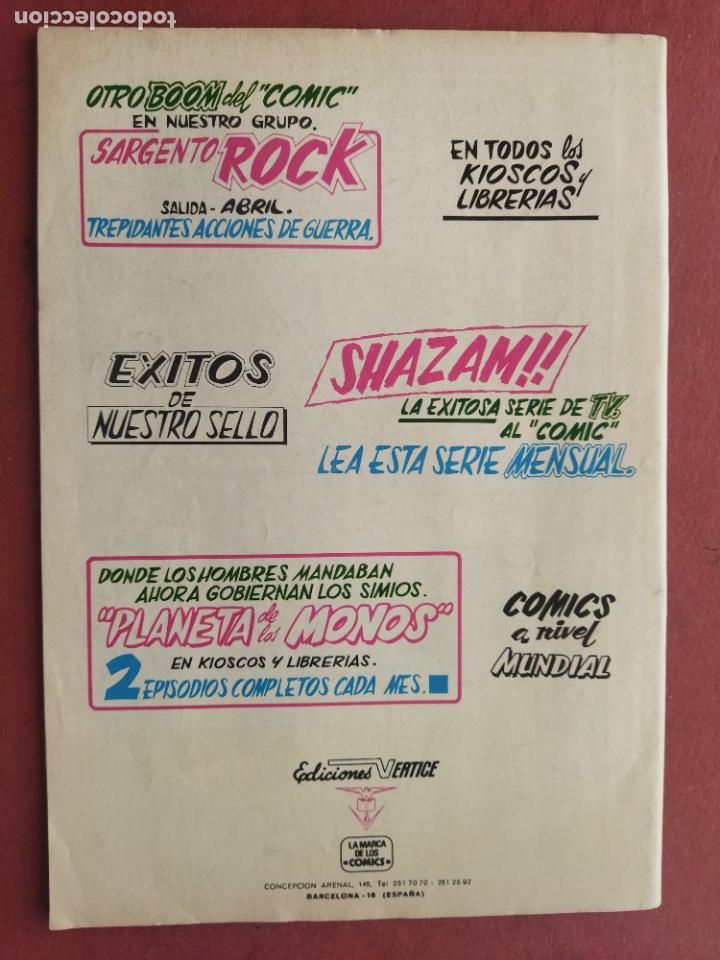 todocoleccion
OTRO BOOM del "COMIC"
EN NUESTRO GRUPO.
SARGENTO ROCK
SALIDA - ABRIL.
TREPIDANTES ACCIONES DE GUERRA.
EN TODOS los
KIOSCOS y
LIBRERIAS
EXITOS
DE
NUESTRO SELLO
SHAZAM!!
LA EXITOSA SERIE DE TV.
AL "COMIC"
LEA ESTA SERIE MENSUAL.
DONDE LOS HOMBRES MANDABAN
AHORA GOBIERNAN LOS SIMIOS.
"PLANETA de los MONOS"
EN KIOSCOS Y LIBRERIAS.
2 EPISODIOS COMPLETOS CADA MES.
COMICS
a nivel
MUNDIAL
Ediciones VERTICE
LA MARCA
DE LOS
"COMICS"
CONCEPCION ARENAL, 145, Tel 251 70 70 - 251 25 92
BARCELONA - 16 (ESPAÑA)